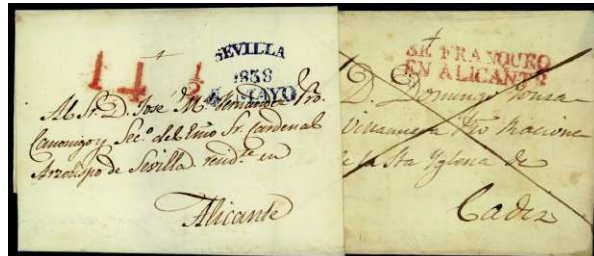 1 4 1/2
SEVILLA
1838
MAYO
Al Sr. D. José Mª. Fernandez Pro.
Canonigo y Sec.º del Emo Sr. Cardenal
Arzobispo de Sevilla resid.te en
Alicante
SE FRANQUEO
EN ALICANTE
D. Domingo
Villanueva Pro Racione
de la Sta Yglesia de
Cadiz